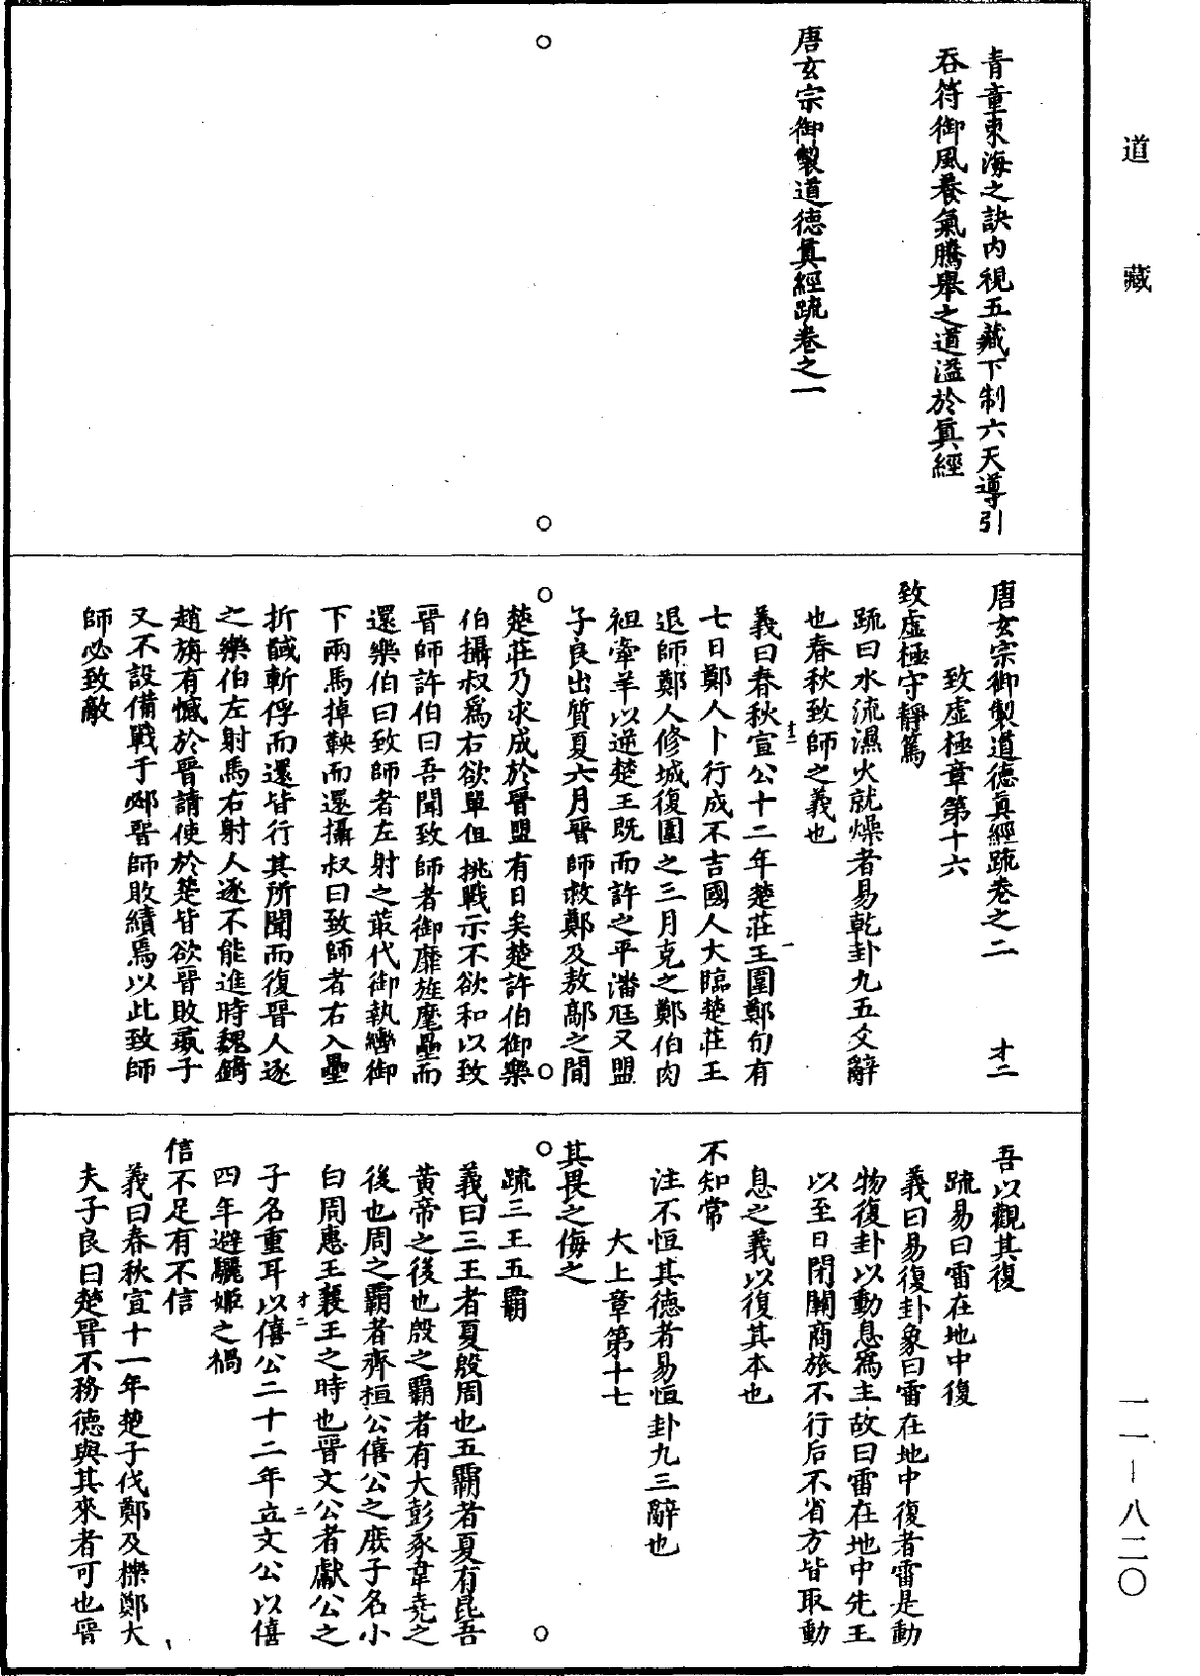 道藏
一一—八二〇
青童東海之訣内視五藏下制六天導引
吞符御風養氣騰舉之道溢於真經
唐玄宗御製道德真經疏卷之一
唐玄宗御製道德真經疏卷之二 才二
致虛極章第十六
致虛極守靜篤
疏曰水流濕火就燥者易乾卦九五爻辭
也春秋致師之義也
義曰春秋宣公十二年楚莊王圍鄭旬有
七日鄭人卜行成不吉國人大臨楚莊王
退師鄭人修城復圍之三月克之鄭伯肉
袒牽羊以逆楚王既而許之平潘尫又盟
子良出質夏六月晉師救鄭及敖鄗之間
楚莊乃求成於晉盟有日矣楚許伯御樂
伯攝叔爲右欲單但挑戰示不欲和以致
晉師許伯曰吾聞致師者御靡旌麾壘而
還樂伯曰致師者左射之菆代御執轡御
下兩馬掉鞅而還攝叔曰致師者右入壘
折馘斬俘而還皆行其所聞而復晉人逐
之樂伯左射馬右射人逐不能進時魏錡
趙旃有憾於晉請使於楚皆欲晉敗彘子
又不設備戰于邲晉師敗績焉以此致師
師必致敵
吾以觀其復
疏易曰雷在地中復
義曰易復卦象曰雷在地中復者雷是動
物復卦以動息爲主故曰雷在地中先王
以至日閉關商旅不行后不省方皆取動
息之義以復其本也
不知常
注不恒其德者易恒卦九三辭也
大上章第十七
其畏之侮之
疏三王五霸
義曰三王者夏殷周也五霸者夏有昆吾
黄帝之後也殷之霸者有大彭豕韋堯之
後也周之霸者齊桓公僖公之庶子名小
白周惠王襄王之時也晉文公者獻公之
子名重耳以僖公二十二年立文公以僖
四年避驪姬之禍
信不足有不信
義曰春秋宣十一年楚子伐鄭及櫟鄭大
夫子良曰楚晉不務德與其來者可也晉